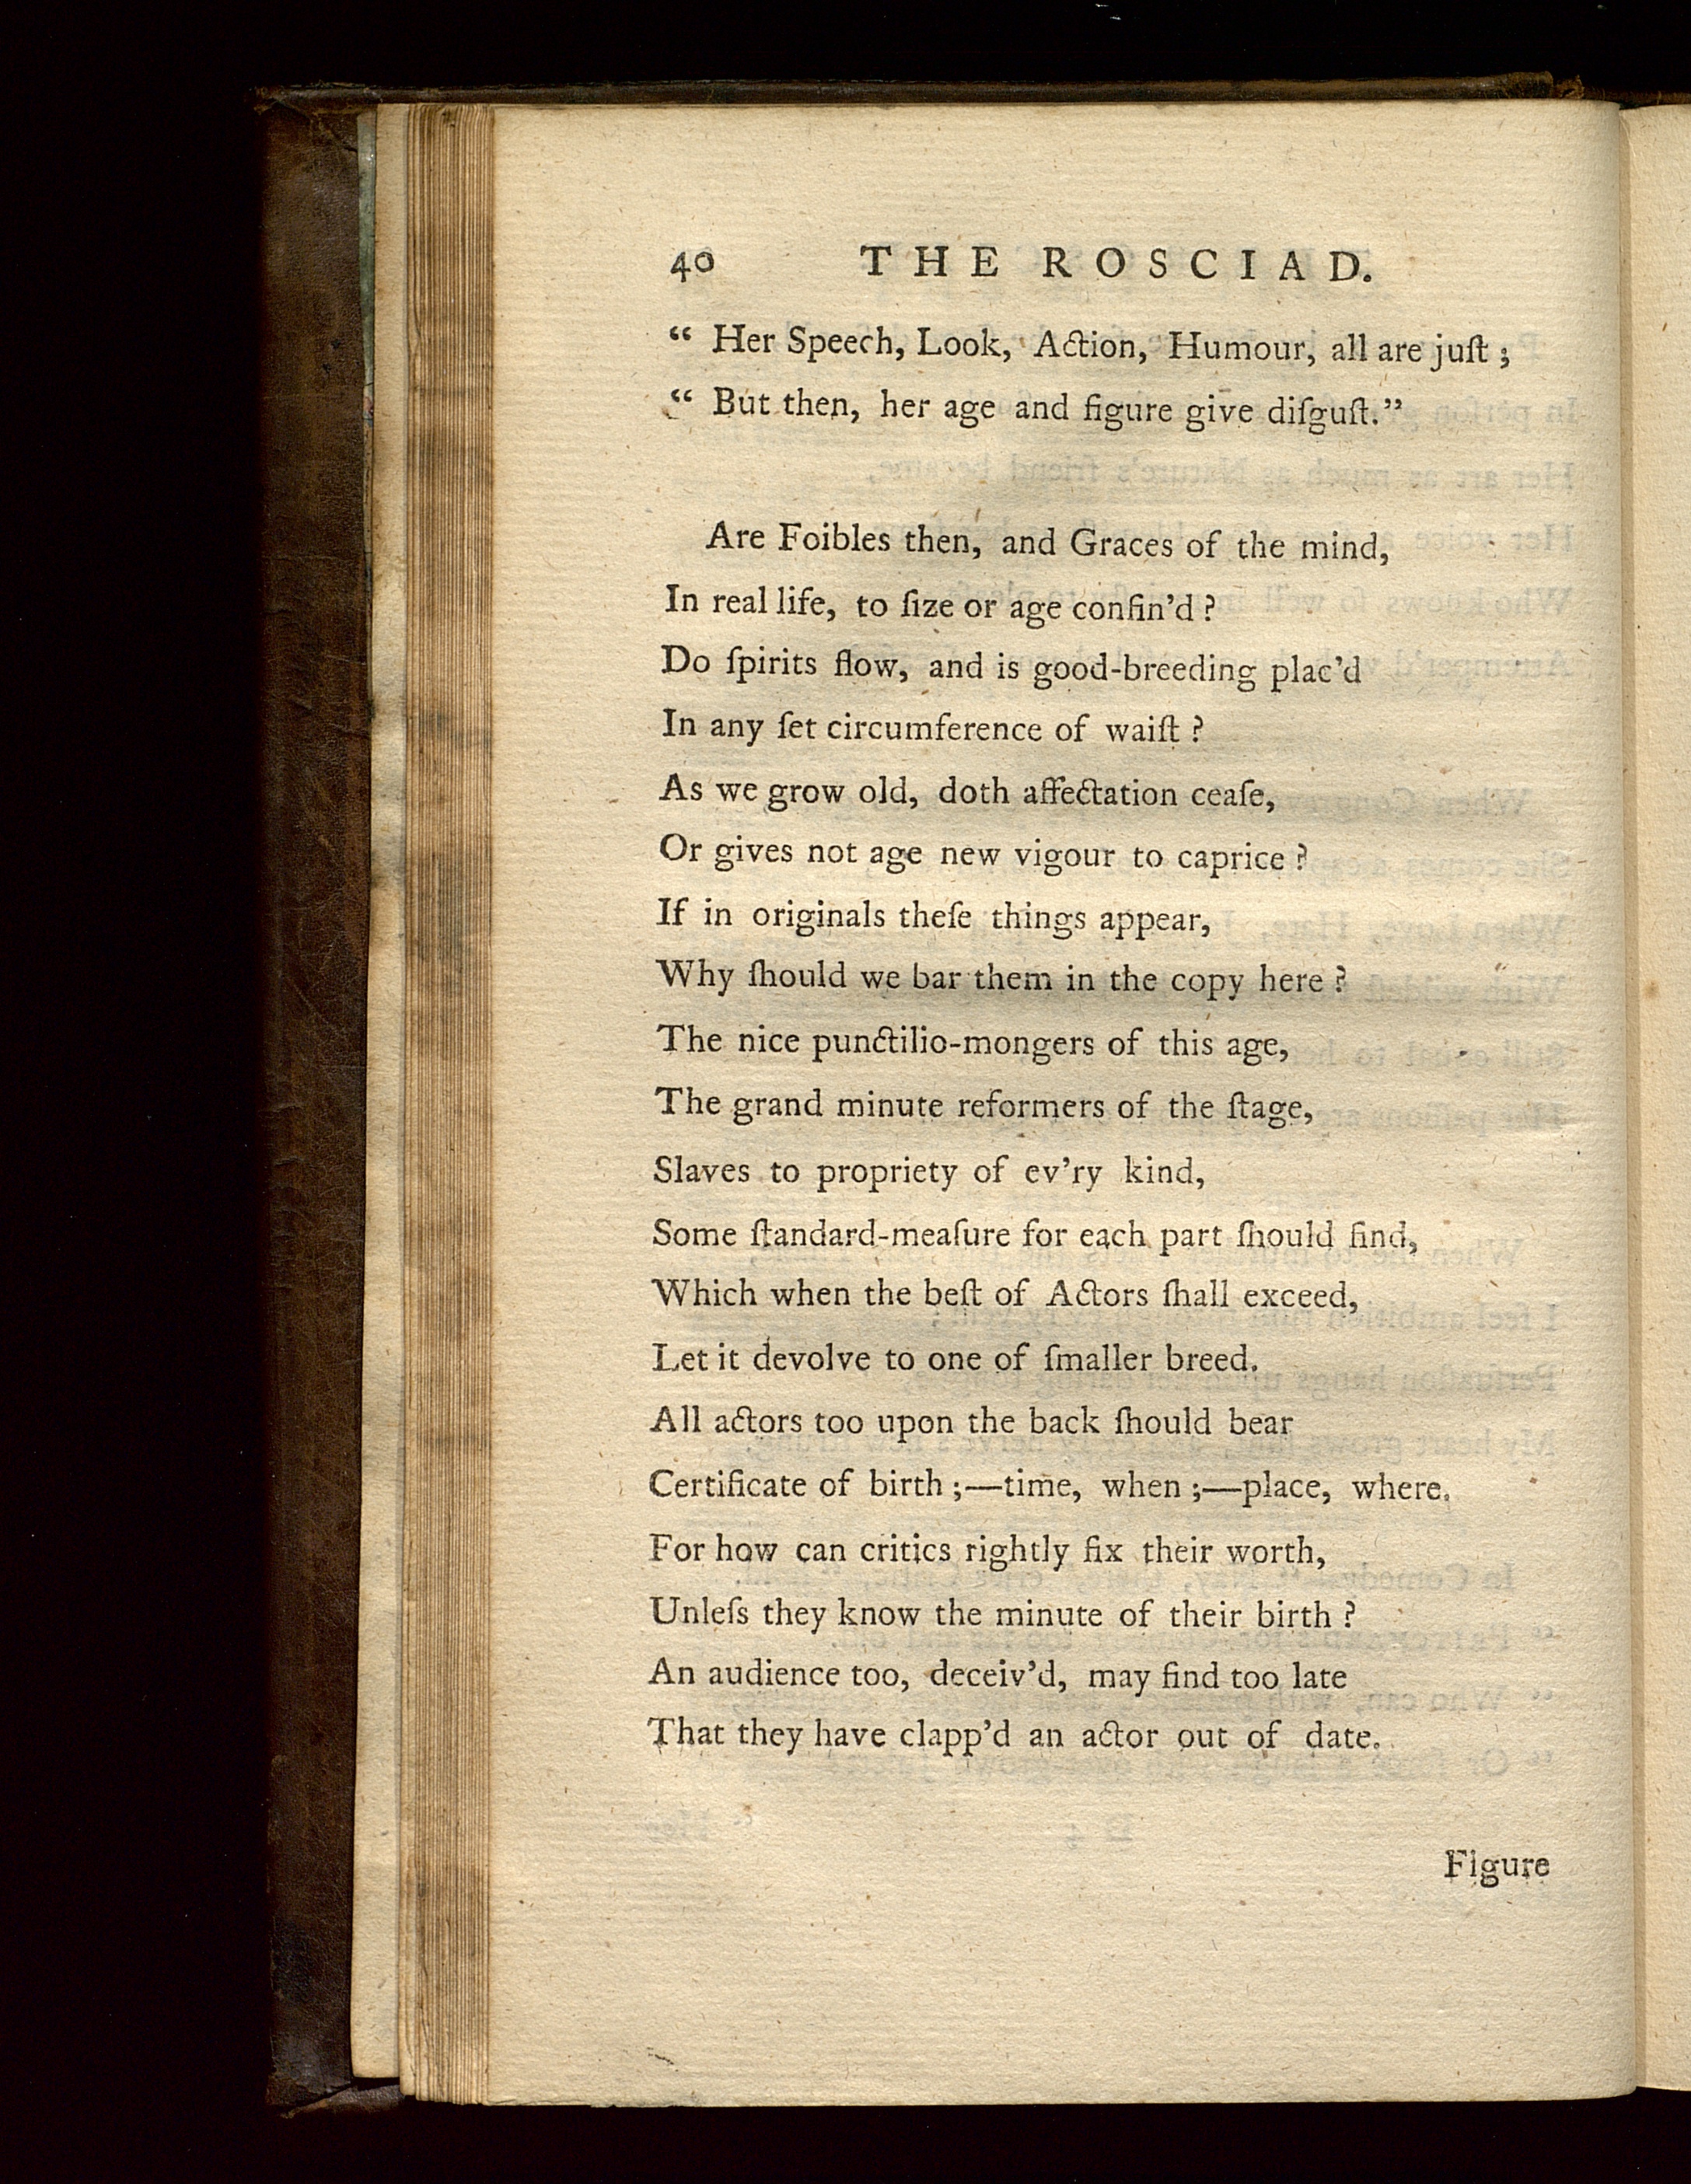 40 THE ROSCIAD.
“ Her Speech, Look, Action, Humour, all are juſt ;
“ But then, her age and figure give diſguſt.”
Are Foibles then, and Graces of the mind,
In real life, to ſize or age confin’d ?
Do ſpirits flow, and is good-breeding plac’d
In any ſet circumference of waiſt ?
As we grow old, doth affectation ceaſe,
Or gives not age new vigour to caprice ?
If in originals theſe things appear,
Why ſhould we bar them in the copy here ?
The nice punctilio-mongers of this age,
The grand minute reformers of the ſtage,
Slaves to propriety of ev’ry kind,
Some ſtandard-meaſure for each part ſhould find,
Which when the beſt of Actors ſhall exceed,
Let it devolve to one of ſmaller breed.
All actors too upon the back ſhould bear
Certificate of birth ;—time, when ;—place, where.
For how can critics rightly fix their worth,
Unleſs they know the minute of their birth ?
An audience too, deceiv’d, may find too late
That they have clapp’d an actor out of date.
Figure